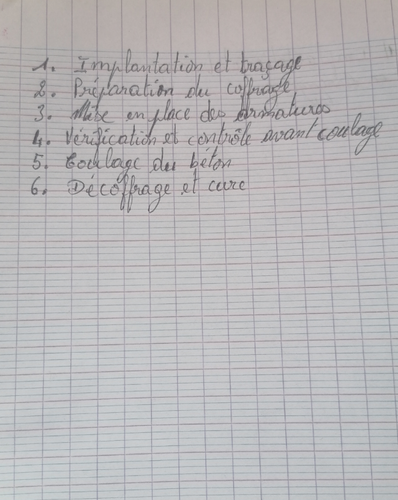 1. Implantation et traçage
2. Préparation du coffrage
3. Mise en place des armatures
4. Vérification et contrôle avant coulage
5. Coulage du béton
6. Décoffrage et cure